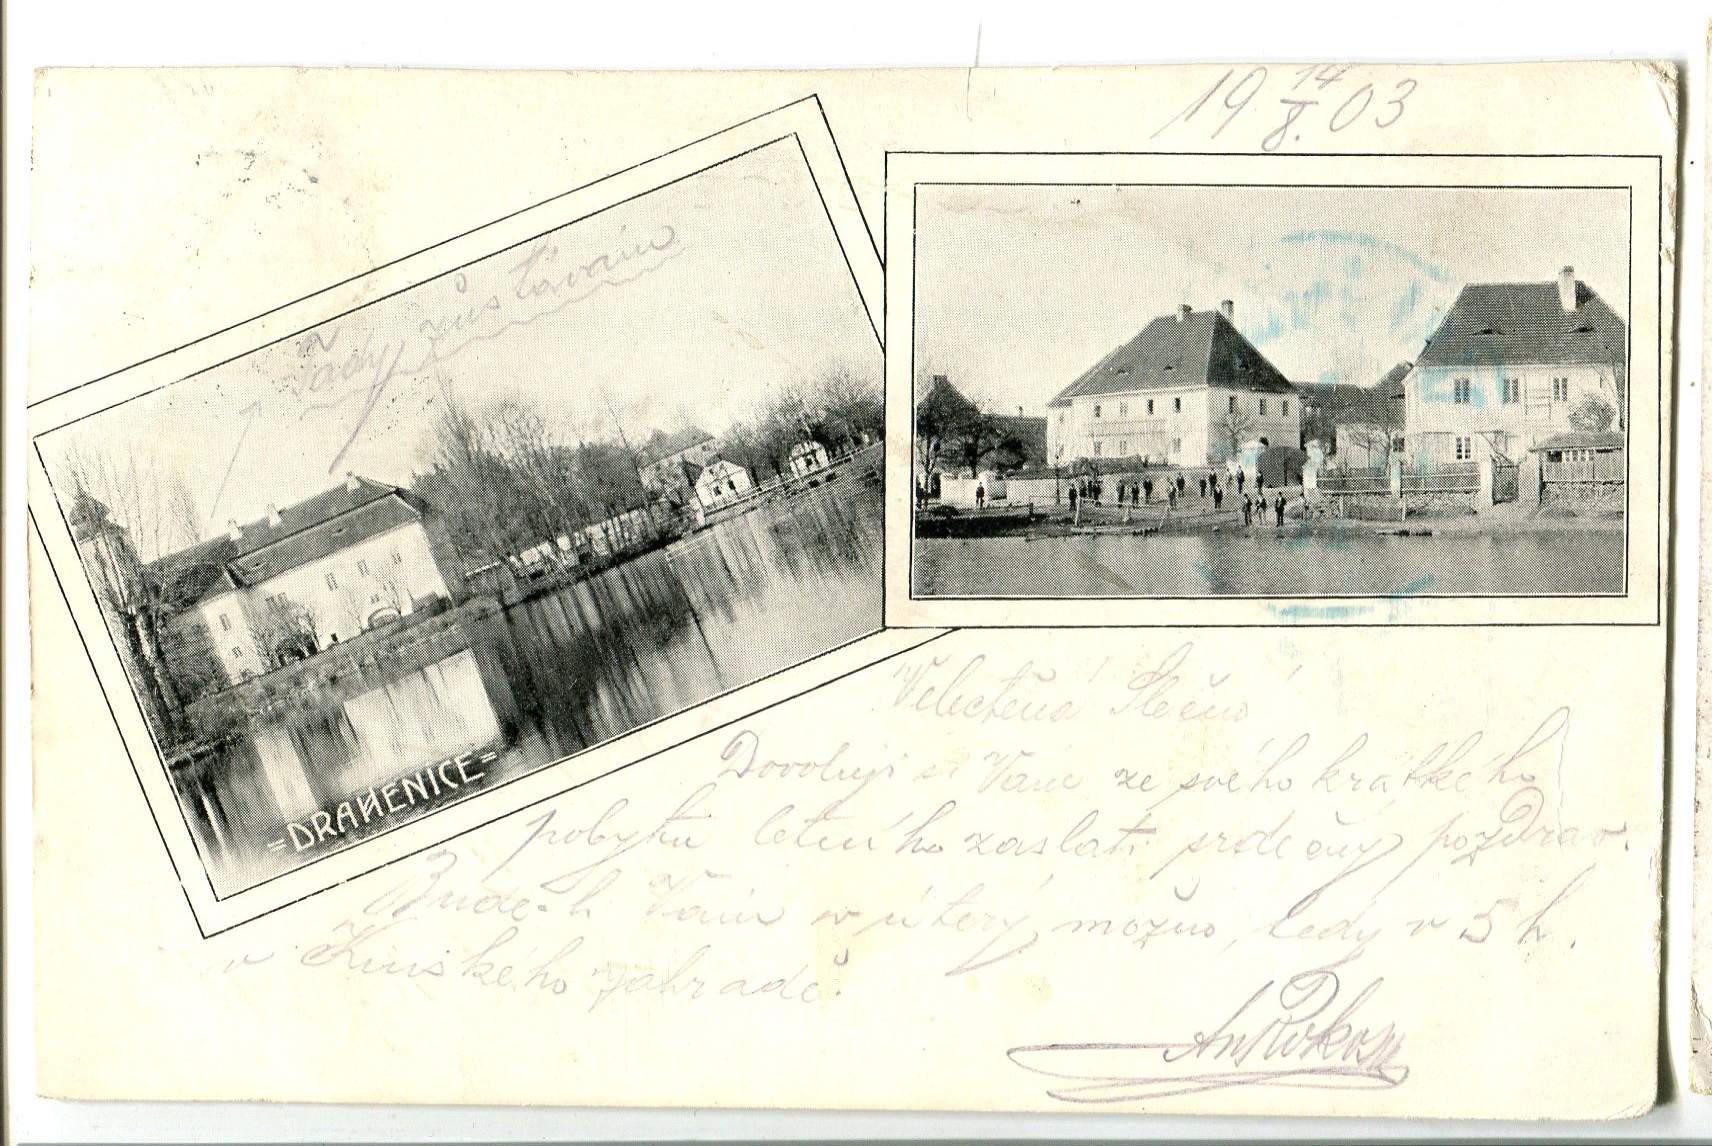 19 14/8. 03
Tady zůstávám
=DRAHENICE=
Velectěná Slečno
Dovoluji si Vám ze svého krátkého
pobytu letního zaslati srdečný pozdrav.
Bude-li Vám v úterý možno, tedy v 5 h.
v Kinského zahradě.